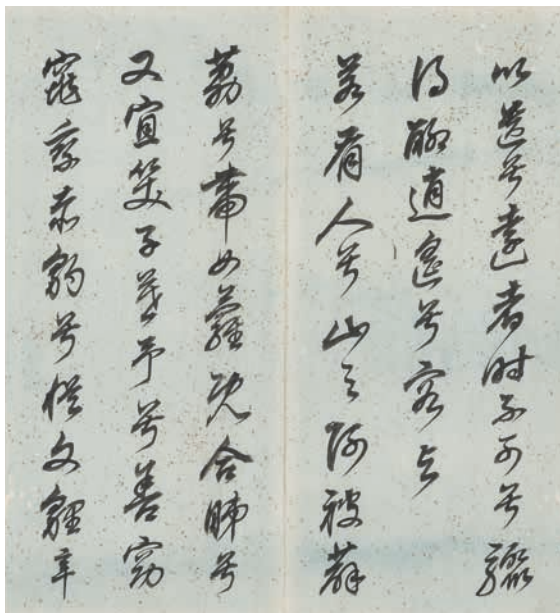 以遺兮遠者時不可兮驟
得聊逍遙兮容與
若有人兮山之阿被薜
荔兮帶女蘿既含睇兮
又宜笑子慕予兮善窈
窕乘赤豹兮從文貍辛